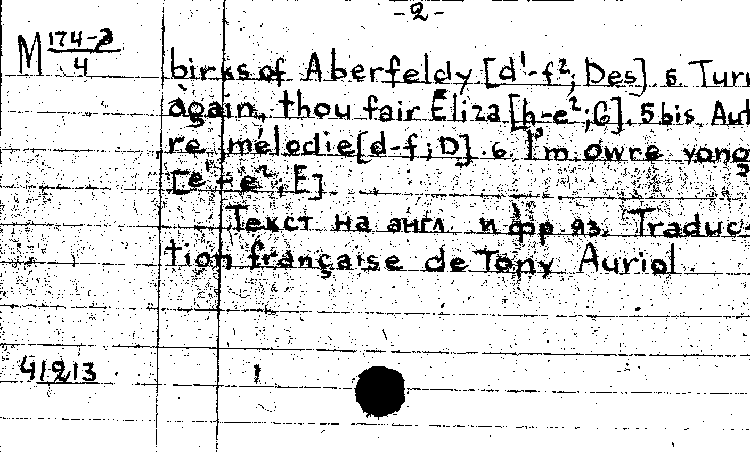 -2-
M 174-3/4
birks of Aberfeldy [d¹-f²; Des]. 5. Turn
again, thou fair Eliza [h-e²; G]. 5bis. Aut
re mélodie [d-f; D]. 6. I'm owre yong
[e¹-e², E]
Текст на англ. и фр. яз. Traduc-
tion française de Tony Auriol
41213 1